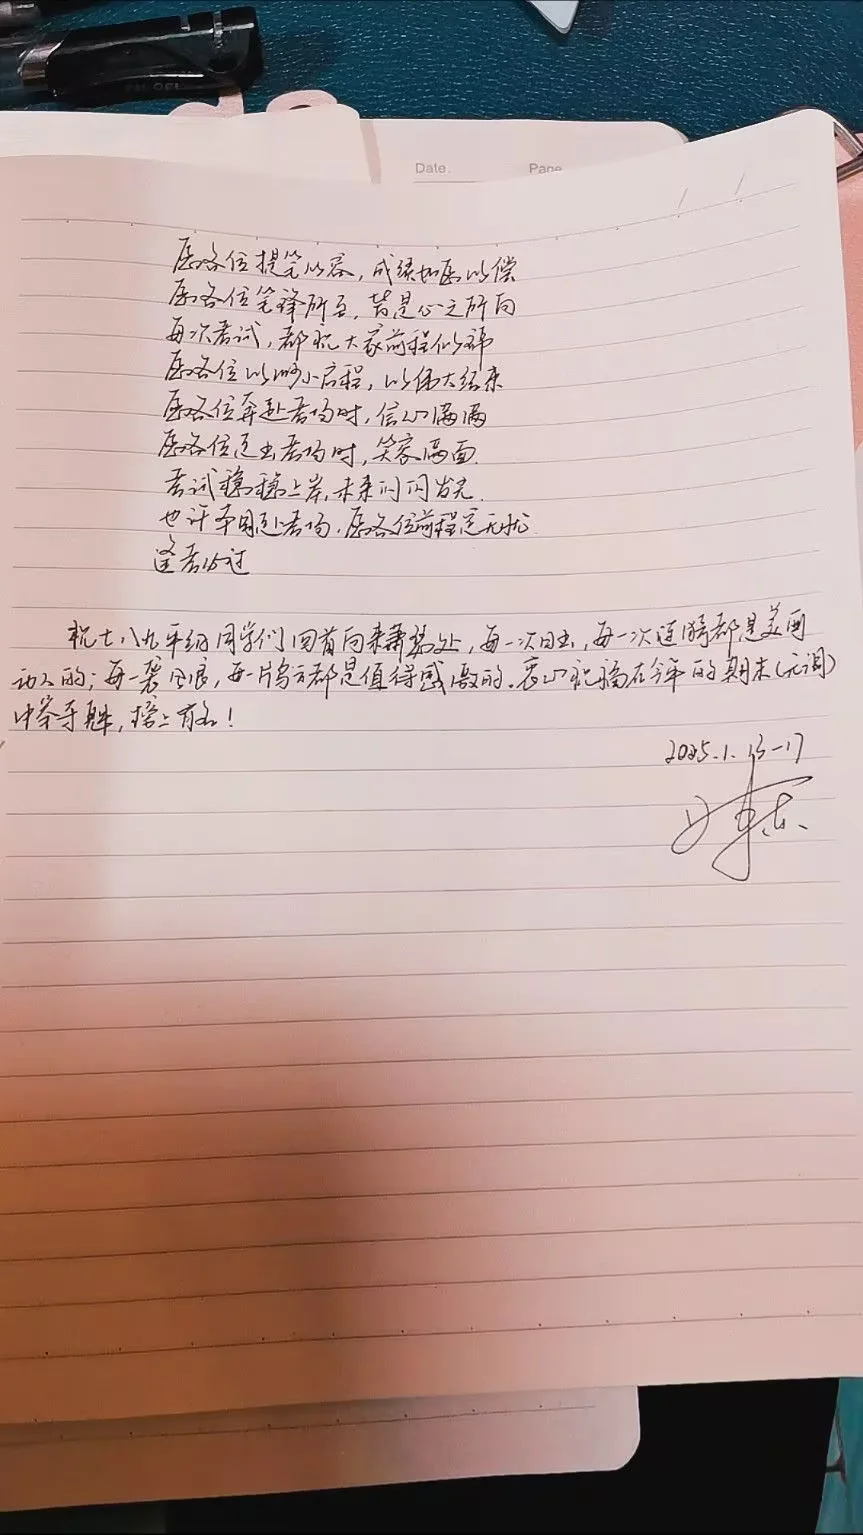 Date.
Page
愿各位提笔从容，成绩如愿以偿
愿各位笔锋所至，皆是心之所向
每次考试，都祝大家前程似锦
愿各位以渺小启程，以伟大结束
愿各位奔赴考场时，信心满满
愿各位走出考场时，笑容满面
考试稳稳上岸，未来闪闪发光
也许不同赴考场，愿各位前程定无忧
逢考必过
祝七八九年级同学们回首向来萧瑟处，每一次日出，每一次涟漪都是美丽
动人的；每一袭风浪，每一片乌云都是值得感激的。衷心祝福在今年的期末（元调）
中夺魁，榜上有名！
2025.1.13-17